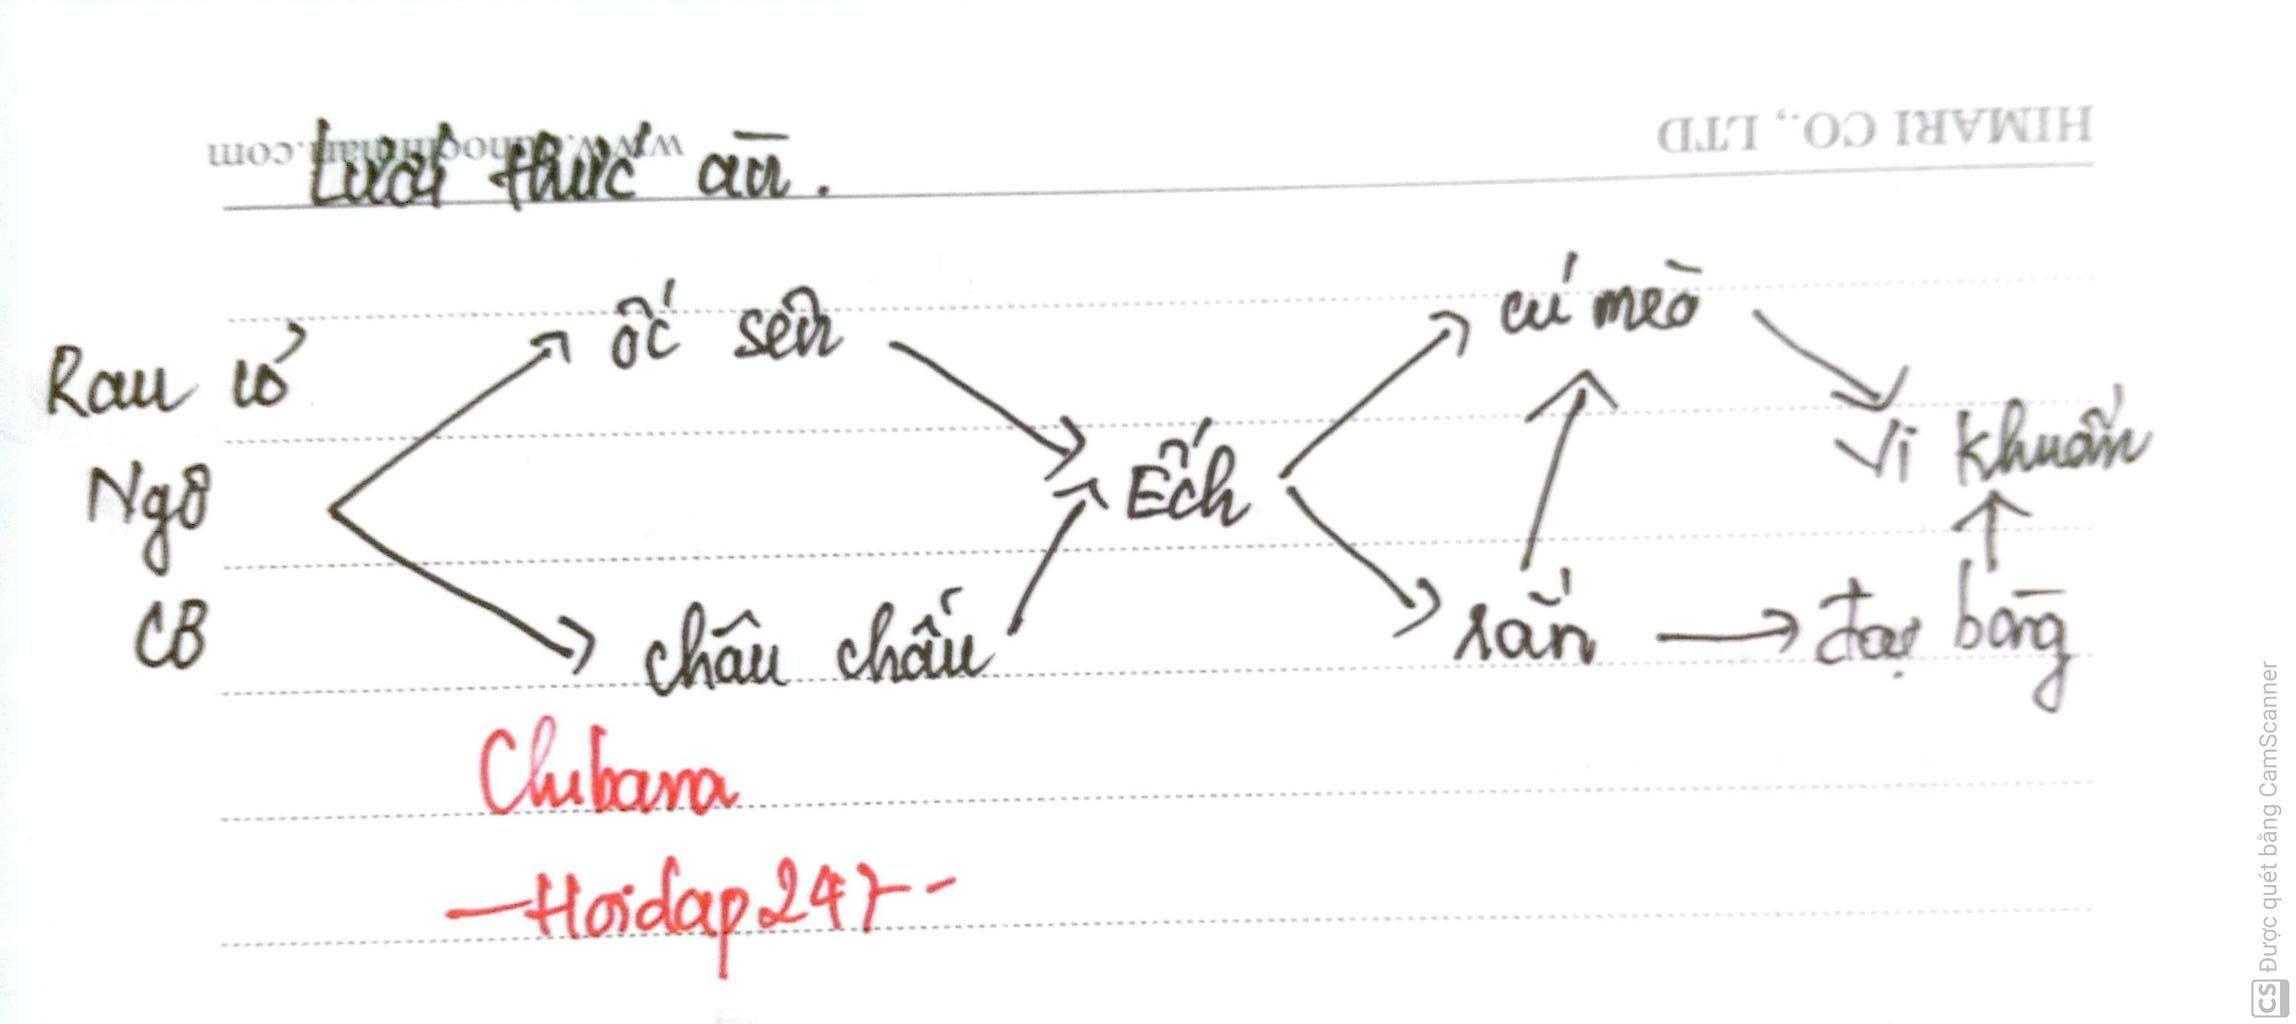 www.
.com
HIMARI CO., LTD
Lưới thức ăn.
Rau cỏ
Ngô
CB
ốc sên
châu chấu
Ếch
cú mèo
rắn
đại bàng
Vi khuẩn
Chibana
-Hoidap247-
CS Được quét bằng CamScanner